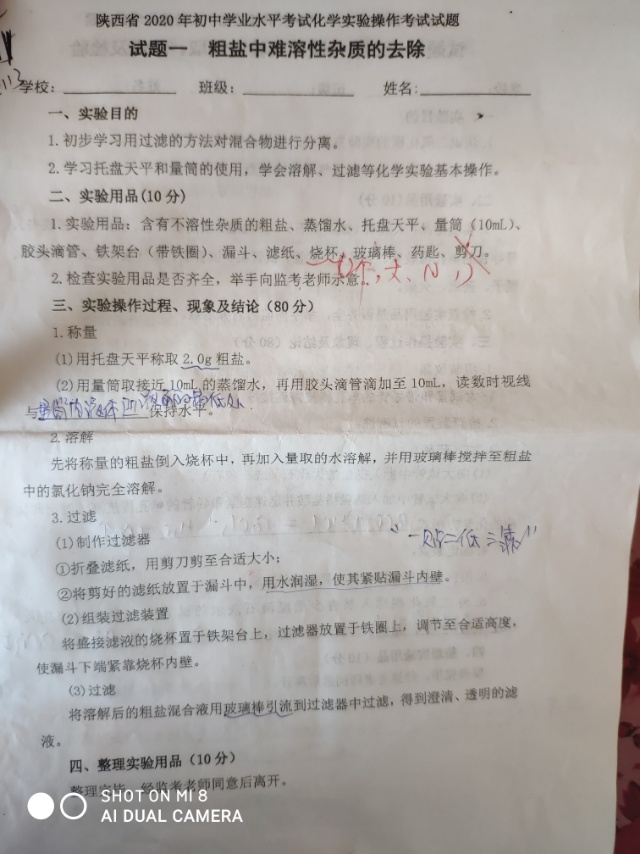 陕西省2020年初中学业水平考试化学实验操作考试试题
试题一 粗盐中难溶性杂质的去除
学校: 班级: 姓名:
一、实验目的
1.初步学习用过滤的方法对混合物进行分离。
2.学习托盘天平和量筒的使用,学会溶解、过滤等化学实验基本操作。
二、实验用品(10分)
1.实验用品:含有不溶性杂质的粗盐、蒸馏水、托盘天平、量筒(10mL)、
胶头滴管、铁架台(带铁圈)、漏斗、滤纸、烧杯、玻璃棒、药匙、剪刀。
2.检查实验用品是否齐全,举手向监考老师示意。
三、实验操作过程、现象及结论(80分)
1.称量
(1)用托盘天平称取2.0g粗盐。
(2)用量筒取接近10mL的蒸馏水,再用胶头滴管滴加至10mL,读数时视线
与量筒内液体凹液面的最低处保持水平。
2.溶解
先将称量的粗盐倒入烧杯中,再加入量取的水溶解,并用玻璃棒搅拌至粗盐
中的氯化钠完全溶解。
3.过滤
(1)制作过滤器
"一贴二低三靠"
①折叠滤纸,用剪刀剪至合适大小;
②将剪好的滤纸放置于漏斗中,用水润湿,使其紧贴漏斗内壁。
(2)组装过滤装置
将盛接滤液的烧杯置于铁架台上,过滤器放置于铁圈上,调节至合适高度,
使漏斗下端紧靠烧杯内壁。
(3)过滤
将溶解后的粗盐混合液用玻璃棒引流到过滤器中过滤,得到澄清、透明的滤
液。
四、整理实验用品(10分)
整理完毕,经监考老师同意后离开。
SHOT ON MI 8
AI DUAL CAMERA